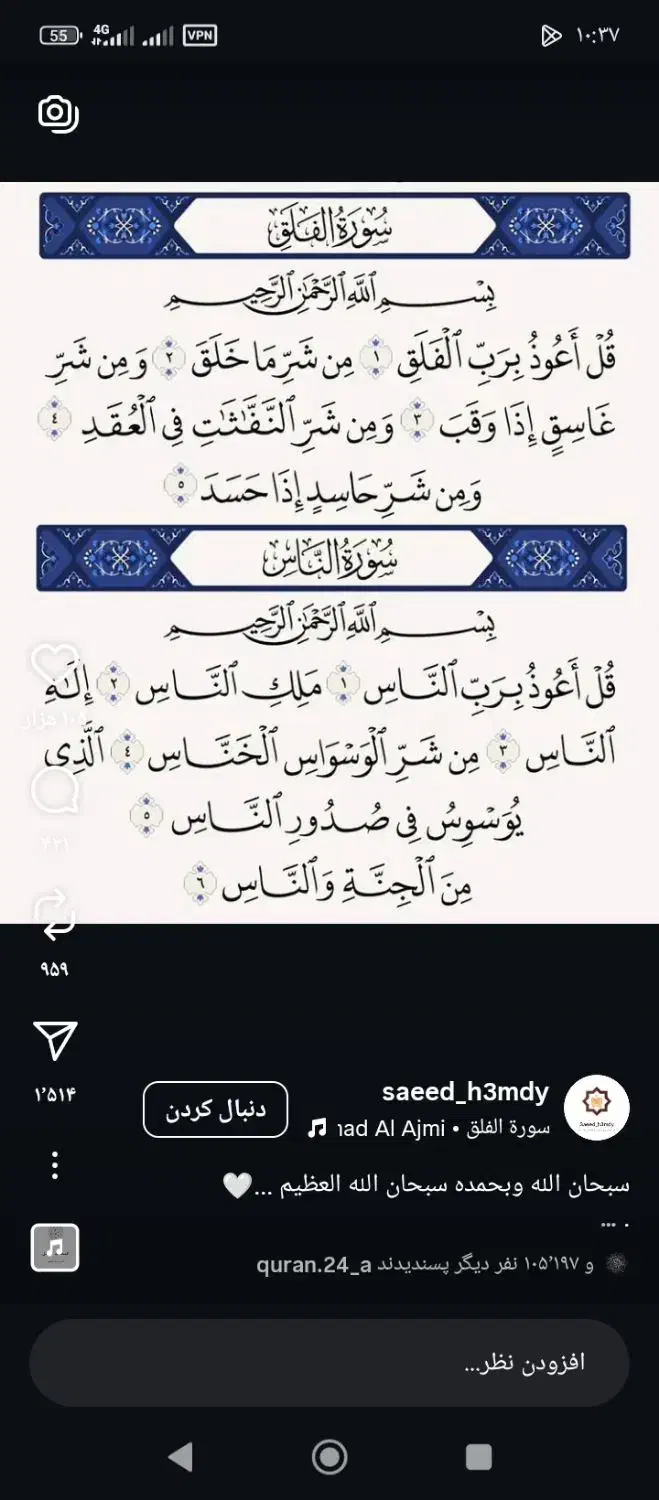 55 4G VPN ۱۰:۳۷
سُورَةُ الفَلَقِ
بِسْمِ ٱللَّهِ ٱلرَّحْمَٰنِ ٱلرَّحِيمِ
قُلْ أَعُوذُ بِرَبِّ ٱلْفَلَقِ ١ مِن شَرِّ مَا خَلَقَ ٢ وَمِن شَرِّ
غَاسِقٍ إِذَا وَقَبَ ٣ وَمِن شَرِّ ٱلنَّفَّٰثَٰتِ فِى ٱلْعُقَدِ ٤
وَمِن شَرِّ حَاسِدٍ إِذَا حَسَدَ ٥
سُورَةُ النَّاسِ
بِسْمِ ٱللَّهِ ٱلرَّحْمَٰنِ ٱلرَّحِيمِ
قُلْ أَعُوذُ بِرَبِّ ٱلنَّاسِ ١ مَلِكِ ٱلنَّاسِ ٢ إِلَٰهِ
ٱلنَّاسِ ٣ مِن شَرِّ ٱلْوَسْوَاسِ ٱلْخَنَّاسِ ٤ ٱلَّذِى
يُوَسْوِسُ فِى صُدُورِ ٱلنَّاسِ ٥
مِنَ ٱلْجِنَّةِ وَٱلنَّاسِ ٦
۱۰۵ هزار
۴۲۱
۹۵۹
۱٬۵۱۴
saeed_h3mdy
دنبال کردن
سورة الفلق • nad Al Ajmi
سبحان الله وبحمده سبحان الله العظيم ...🤍
. ...
quran.24_a و ۱۰۵٬۱۹۷ نفر دیگر پسندیدند
افزودن نظر...